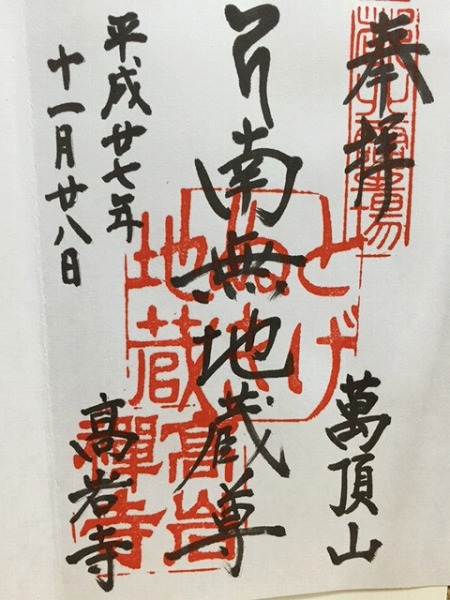 奉拝
萬頂山
南無地蔵尊
平成廿七年
十一月廿八日
高岩寺
靈場
とげ
地蔵
高岩
禪寺